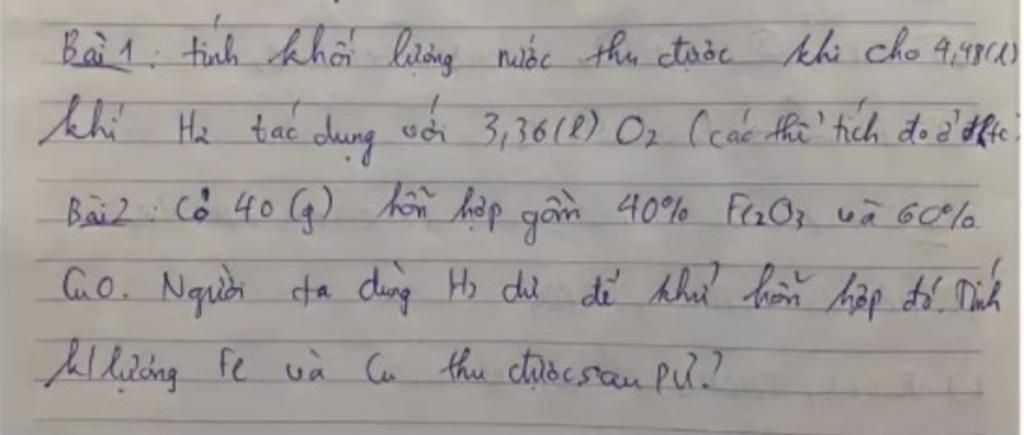 Bài 1: tính khối lượng nước thu được khi cho 4,48(l)
khí H2 tác dụng với 3,36(l) O2 (các thể tích đo ở đktc)
Bài 2: Có 40(g) hỗn hợp gồm 40% Fe2O3 và 60%
CuO. Người ta dùng H2 dư để khử hỗn hợp đó. Tính
k/lượng Fe và Cu thu được sau pứ?